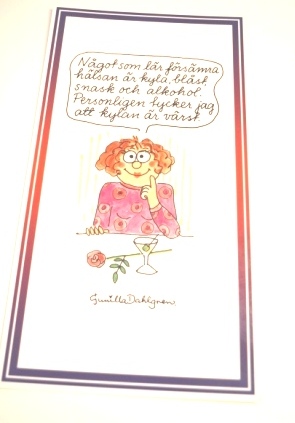 Något som lär försämra
hälsan är kyla, blåst,
snask och alkohol.
Personligen tycker jag
att kylan är värst.
Gunilla Dahlgren